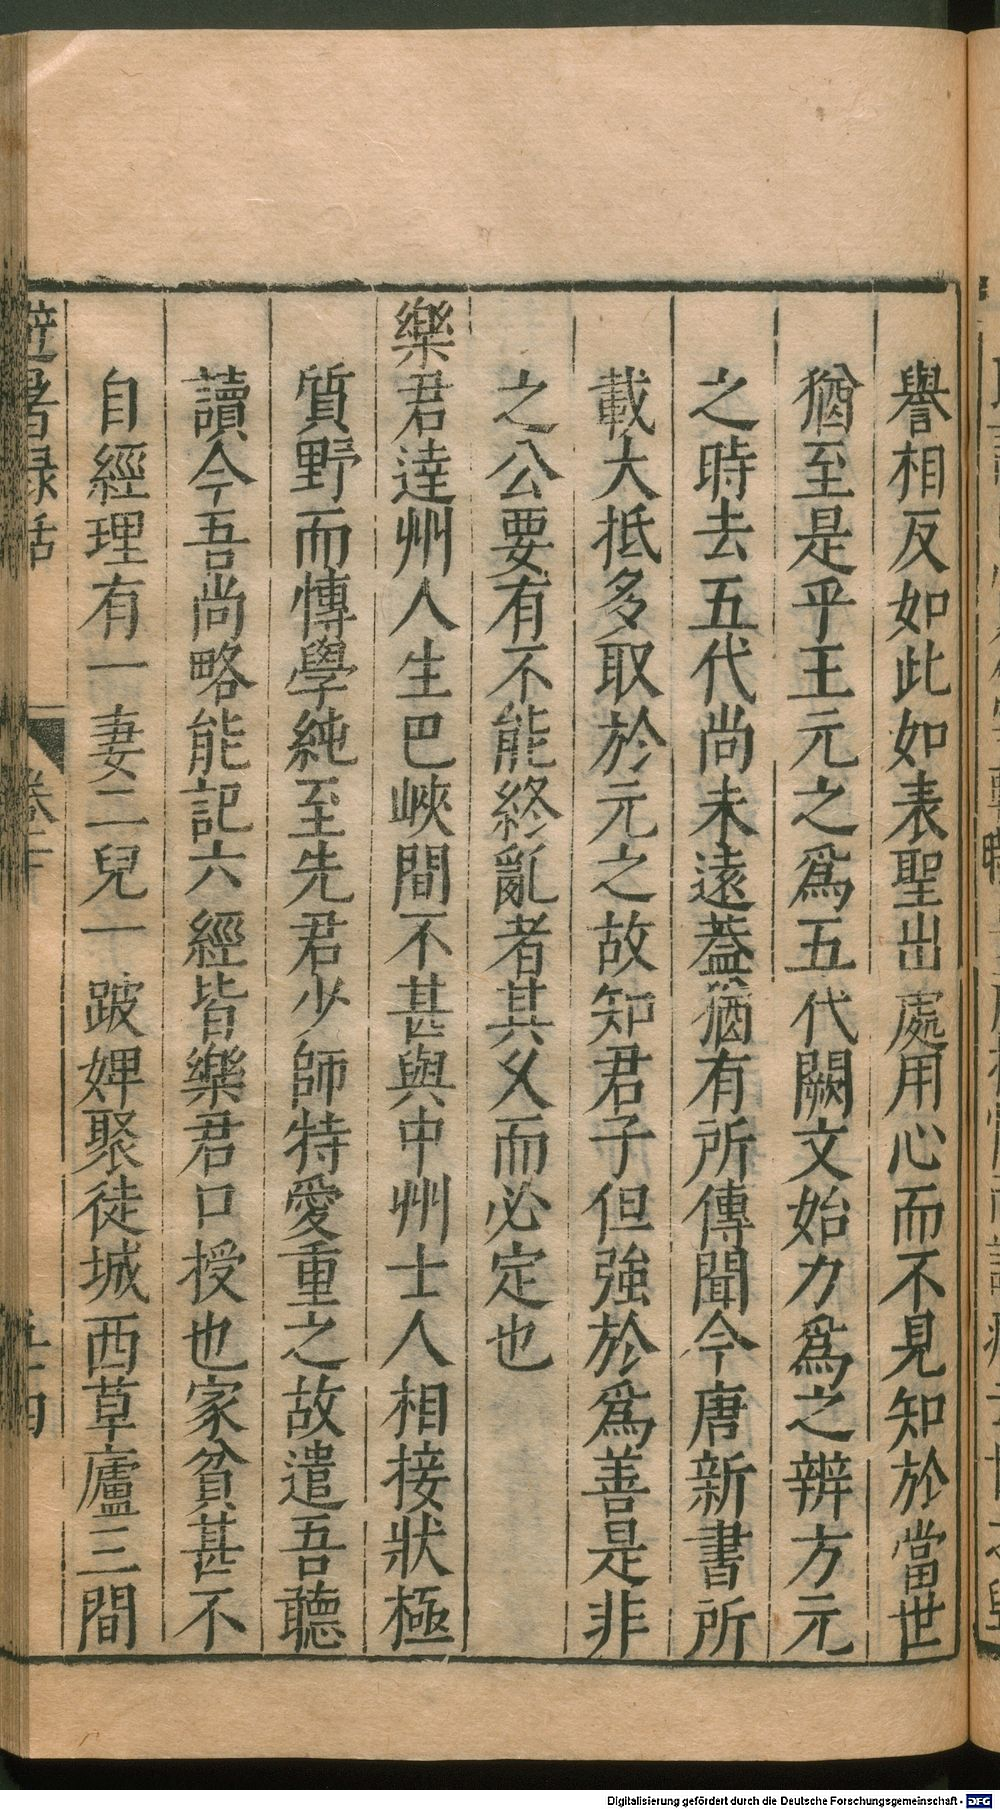 譽相反如此如表聖出處用心而不見知於當世
猶至是乎王元之爲五代闕文始力爲之辨方元
之時去五代尚未遠葢猶有所傳聞今唐新書所
載大抵多取於元之故知君子但強於爲善是非
之公要有不能終亂者其久而必定也
樂君逹州人生巴峽間不甚與中州士人相接狀極
質野而愽學純至先君少師特愛重之故遣吾聽
讀今吾尚略能記六經皆樂君口授也家貧甚不
自經理有一妻二兒一跛婢聚徒城西草廬三間
避暑錄話
Digitalisierung gefördert durch die Deutsche Forschungsgemeinschaft - DFG